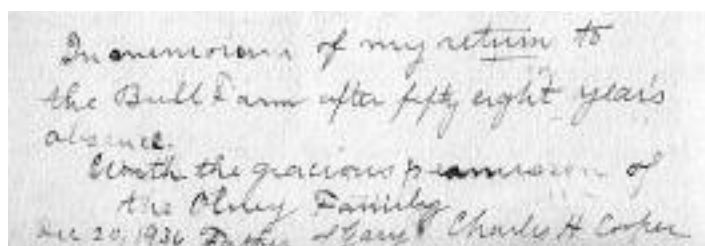 In memoriam of my return to
the Bull Farm after fifty eight years
absence.
With the gracious permission of
the Olney Family
Dec 20, 1936 Father of Gary Charles H Cooper